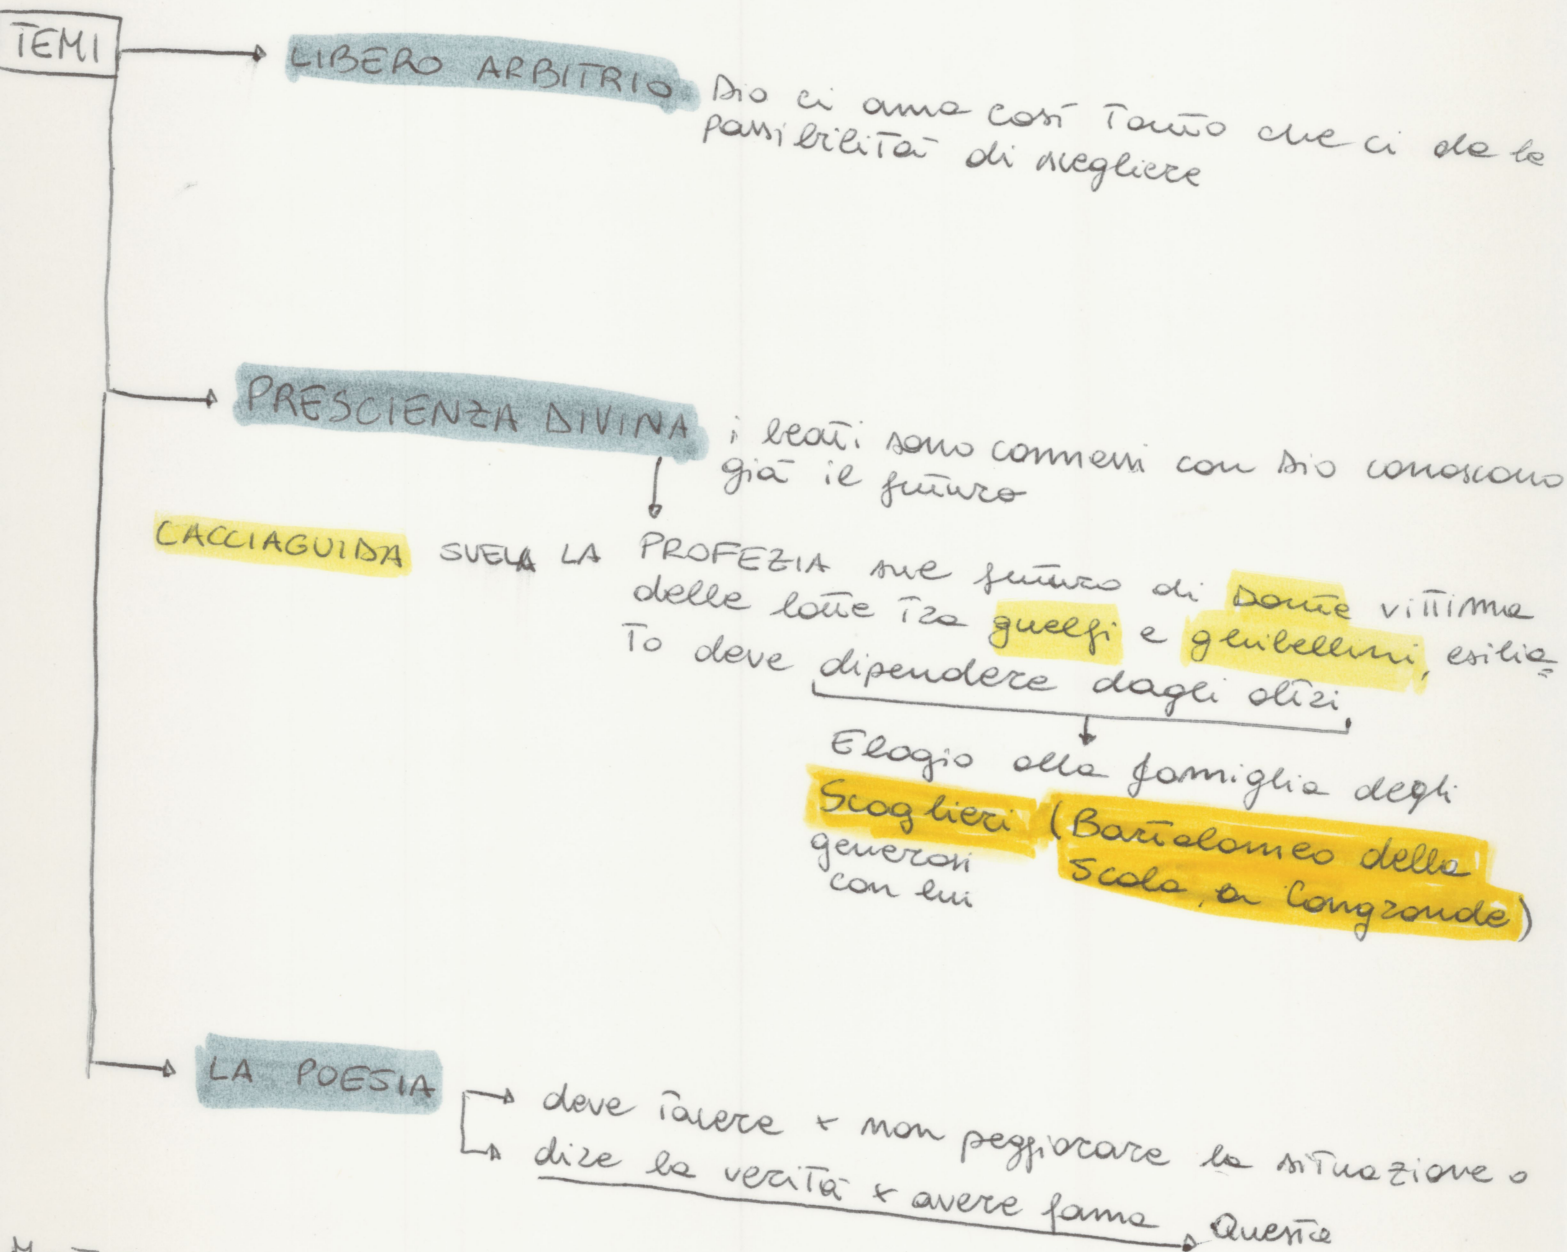 TEMI
LIBERO ARBITRIO
Dio ci ama così tanto che ci da la
possibilità di scegliere
PRESCIENZA DIVINA
i beati sono connessi con Dio conoscono
già il futuro
CACCIAGUIDA SVELA LA PROFEZIA sul futuro di Dante vittima
delle lotte tra guelfi e ghibellini, esilia=
to deve dipendere dagli altri,
Elogio alla famiglia degli
Scaglieri (Bartolomeo della
generosi
Scala, a Cangrande)
con lui
LA POESIA
deve tacere x non peggiorare la situazione o
dire la verità x avere fama
Questa